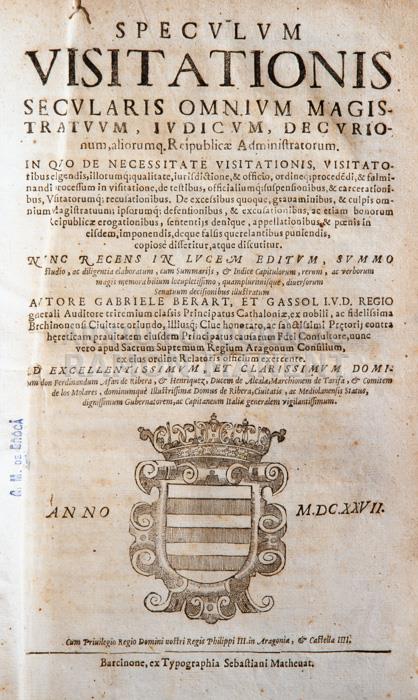 SPECVLVM
VISITATIONIS
SECVLARIS OMNIVM MAGIS-
TRATVVM, IVDICVM, DECVRIO-
num, aliorumq. Reipublicæ Administratorum.
IN QVO DE NECESSITATE VISITATIONIS, VISITATO-
tibus elgendis, illorumq; qualitate, iurisdictione, & officio, ordineq; procedēdi, & fulmi-
nandi processum in visitatione, de testibus, officialiumq; suspensionibus, & carcerationi-
bus, Visitatorumq; recusationibus. De excessibus quoque, grauaminibus, & culpis om-
nium Magistratuum; ipsorumq; defensionibus, & excusationibus, ac etiam bonorum
Reipublicæ erogationibus, sententijs denique, appellationibus, & pœnis in
eisdem, imponendis, deque falsis querelantibus puniendis,
copiosè disseritur, atque discutitur.
NVNC RECENS IN LVCEM EDITVM, SVMMO
studio, ac diligentia elaboratum, cum Summarijs, & Indice Capitulorum, rerum, ac verborum
magis memorabilium locupletissimo, quamplurimisque, diuersorum
Senatuum decisionibus illustratum
AVTORE GABRIELE BERART, ET GASSOL I.V.D. REGIO
generali Auditore triremium classis Principatus Cathaloniæ, ex nobili, ac fidelissima
Brchinonensi Ciuitate oriundo, Illiusq; Ciue honorato, ac fidelissimi Prętorij contra
hereticam prauitatem eiusdem Principatus causarum Fidei Consultore, nunc
vero apud Sacrum Supremum Regium Aragonum Consilium,
ex eius ordine Relatoris officium exercente.
AD EXCELLENTISSIMVM, ET CLARISSIMVM DOMI-
num don Ferdinandum Afan de Ribera, & Henriquez, Ducem de Alcala, Marchionem de Tarifa, & Comitem
de los Molares, dominumque Illustrissimæ Domus de Ribera, Ciuitatis, ac Mediolanensis Status,
dignissimum Gubernatorem, ac Capitaneum Italiæ generalem vigilantissimum.
ANNO M.DC.XXVII.
Cum Priuilegio Regio Domini nostri Regis Philippi III. in Aragonia, & Castella IIII.
Barcinone, ex Typographia Sebastiani Matheuat.